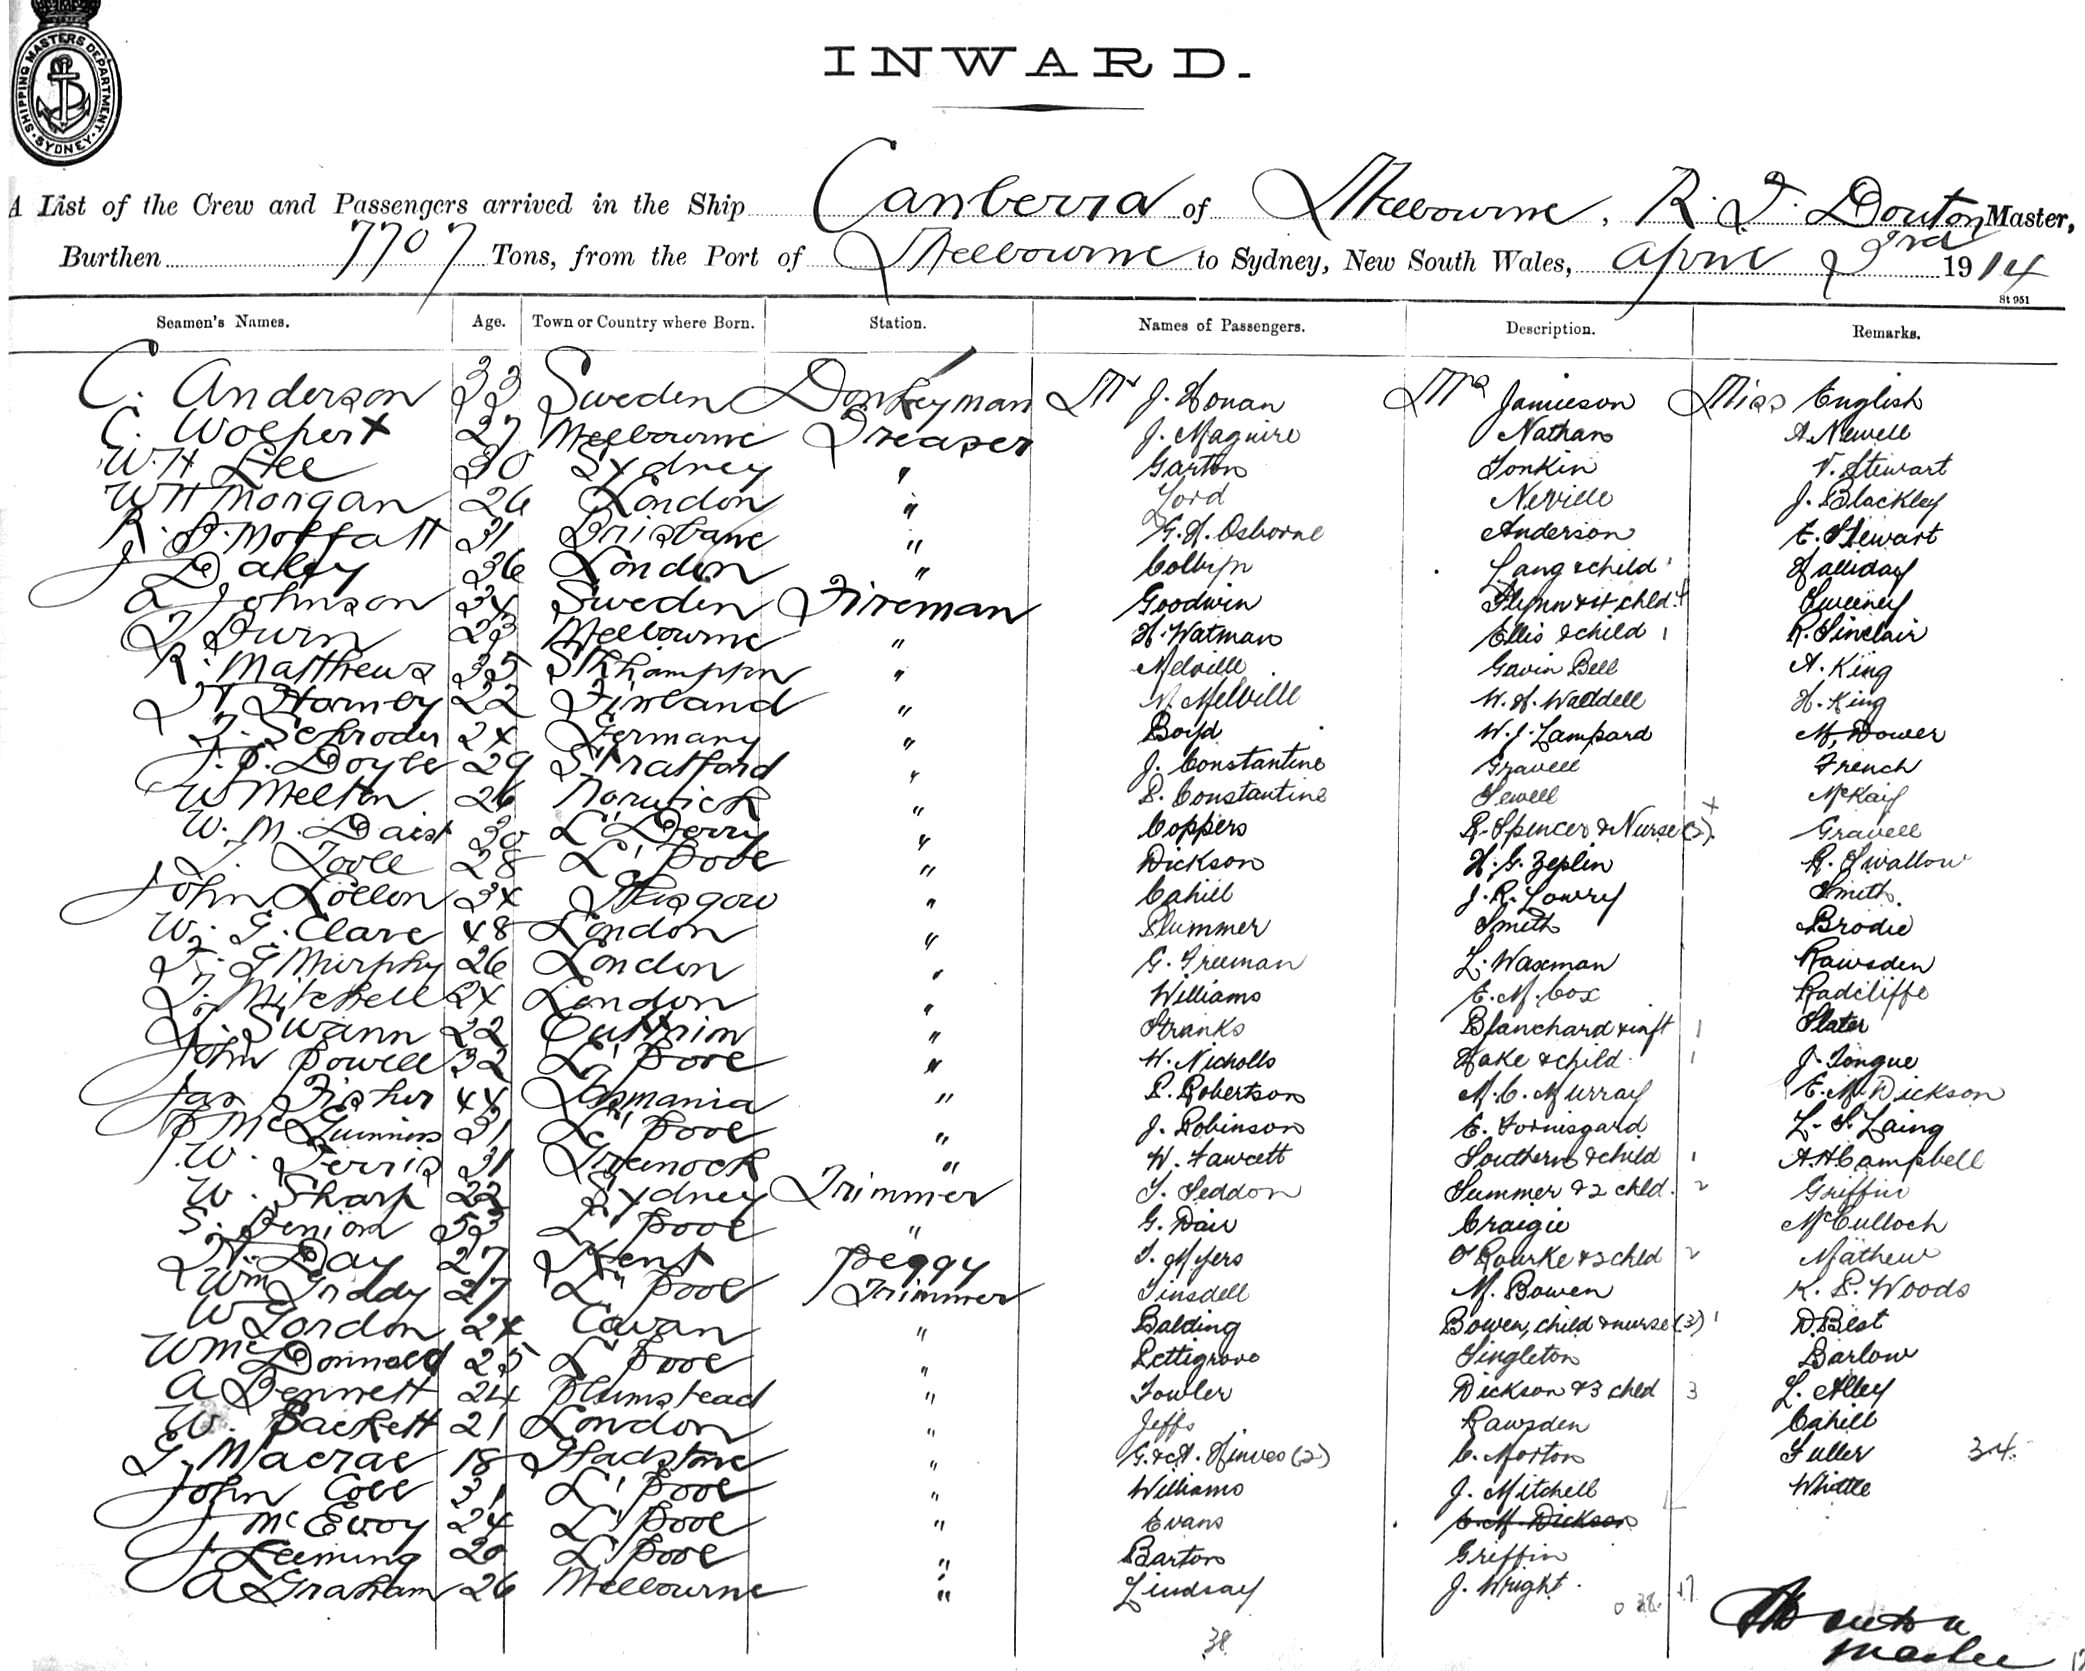 SHIPPING MASTERS DEPARTMENT · SYDNEY ·
INWARD.
A List of the Crew and Passengers arrived in the Ship Canberra of Melbourne, R. J. Douton Master,
Burthen 7707 Tons, from the Port of Melbourne to Sydney, New South Wales, April 3rd 1914
St 951
Seamen's Names. Age. Town or Country where Born. Station. Names of Passengers. Description. Remarks.
C. Anderson 33 Sweden Donkeyman Mr J. Honan Mrs Jamieson Miss English
C. Wolpert 27 Melbourne Greaser J. Maguire Nathan A. Newell
W. H Lee 30 Sydney " Garton Tonkin V. Stewart
W H Morgan 26 London " Lord Neville J. Blackley
R. J. Moffatt 31 Brisbane " G. H. Osborne Anderson E. Stewart
J Daley 36 London " Colbyn Lang & child 1 Halliday
A Johnson 34 Sweden Fireman Goodwin Flynn & 4 chld. 4 Sweeney
T Burn 23 Melbourne " H. Watman Ellis & child 1 R. Sinclair
R. Matthews 35 Sthhampton " Melville Gavin Bell A. King
H Hornby 22 Finland " N. Melville W. H. Waddell H. King
F. Schroder 24 Germany " Boyd W. J. Lampard M. Dower
J. P. Doyle 29 Stratford " J. Constantine Gravell French
W Melton 26 Norwick " P. Constantine Sewell McKay
W. M. Daist 30 L'Derry " Coppers R. Spencer & Nurse (2) x Gravell
T. Toole 28 L'Pool " Dickson H. G. Zeplin R. Swallow
John Lollon 34 Glasgow " Cahill J. R. Lowry Smith.
W. G. Clare 48 London " Plummer Smith Brodie
F. G Murphy 26 London " G. Freeman L. Waxman Rawsden
T. Mitchell 24 London " Williams E. M. Cox Radcliffe
J. Swann 22 " Stranks Blanchard & inft 1 Slater
John Powell 32 L'Pool " H. Nicholls Hake & child 1 J. Tongue
Jas Fisher 44 Tasmania " P. Robertson M. C. Murray E. M. Dickson
31 L'Pool " J. Robinson E. Fornisgard L. S. Laing
W. Ferris 31 Greenock " W. Fawcett Southern & child 1 A. H. Campbell
W. Sharp 22 Sydney Trimmer T. Seddon Summer & 2 chld. 2 Griffin
S. Benion 53 L'Pool " G. Dair Craigie McCulloch
H. Day 27 Kent Peggy T. Myers O'Rourke & 2 chld 2 Mathew
Wm Griddy 27 L'Pool Trimmer Tinsdell M. Bowen K. P. Woods
W Gordon 24 Cavan " Balding Bowen, child & nurse (3) 1 D. Best
W McDonnald 25 L'Pool " Pettigrove Singleton Barlow
A Bennett 24 Plumstead " Fowler Dickson & 3 chld 3 L. Alley
W. Backett 21 London " Jeffs Rawsden Cahill
G. Macrae 18 Gladstone " G. & A. Hinves (2) C. Morton Fuller 34.
John Cole 31 L'Pool " Williams J. Mitchell Whittle
J McEvoy 24 L'Pool " Evans E. M. Dickson
J Leeming 20 L'Pool " Barton Griffin
A Graham 26 Melbourne " Lindsay J. Wright.
38 38. 17
Master